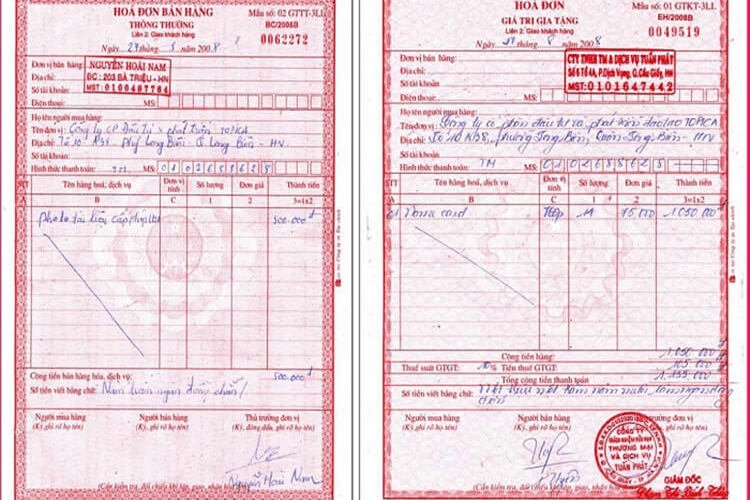 HOÁ ĐƠN BÁN HÀNG
THÔNG THƯỜNG
Liên 2: Giao khách hàng
Mẫu số: 02 GTTT-3LL
BC/2008B
0062272
Ngày 27 tháng 5 năm 2008
Đơn vị bán hàng:
Địa chỉ:
Số tài khoản
Điện thoại: MS:
NGUYỄN HOÀI NAM
ĐC : 203 BÀ TRIỆU - HN
MST: 0100487764
Họ tên người mua hàng:
Tên đơn vị: Công ty CP Đầu tư & phát triển TOPICA
Địa chỉ: Tổ 10 Long Biên - Q Long Biên - HN
Số tài khoản
Hình thức thanh toán: TM MS: 0102688628
STT Tên hàng hoá, dịch vụ Đơn vị tính Số lượng Đơn giá Thành tiền
A B C 1 2 3=1x2
Photo tài liệu 500.000đ
Cộng tiền bán hàng hóa, dịch vụ: 500.000đ
Số tiền viết bằng chữ: Năm trăm ngàn đồng chẵn/
Người mua hàng Người bán hàng Thủ trưởng đơn vị
(Ký, ghi rõ họ tên) (Ký, ghi rõ họ tên) (Ký, đóng dấu, ghi rõ họ tên)
Nguyễn Hoài Nam
(Cần kiểm tra, đối chiếu khi lập, giao, nhận hóa đơn)
HOÁ ĐƠN
GIÁ TRỊ GIA TĂNG
Liên 2: Giao khách hàng
Mẫu số: 01 GTKT-3LL
EH/2008B
0049519
Ngày 27 tháng 8 năm 2008
Đơn vị bán hàng:
Địa chỉ:
Số tài khoản
Điện thoại: MS:
CTY TNHH TM & DỊCH VỤ TUẤN PHÁT
Số 6 Tổ 4A, P.Dịch Vọng, Q.Cầu Giấy, HN
MST: 0101647442
Họ tên người mua hàng:
Tên đơn vị: Công ty cổ phần đầu tư và phát triển đào tạo TOPICA
Địa chỉ: Số 10 phường Long Biên, Quận Long Biên - HN
Số tài khoản
Hình thức thanh toán: TM MS: 0102688628
STT Tên hàng hoá, dịch vụ Đơn vị tính Số lượng Đơn giá Thành tiền
A B C 1 2 3=1x2
01 Name card hộp 14 75.000 1.050.000đ
Cộng tiền hàng: 1.050.000đ
Thuế suất GTGT: 10% Tiền thuế GTGT: 105.000đ
Tổng cộng tiền thanh toán 1.155.000đ
Số tiền viết bằng chữ: Một triệu một trăm năm mươi lăm ngàn đồng
Người mua hàng Người bán hàng Thủ trưởng đơn vị
(Ký, ghi rõ họ tên) (Ký, ghi rõ họ tên)
CÔNG TY
TRÁCH NHIỆM HỮU HẠN
THƯƠNG MẠI
VÀ DỊCH VỤ
TUẤN PHÁT
GIÁM ĐỐC
(Cần kiểm tra, đối chiếu khi lập, giao, nhận hóa đơn)